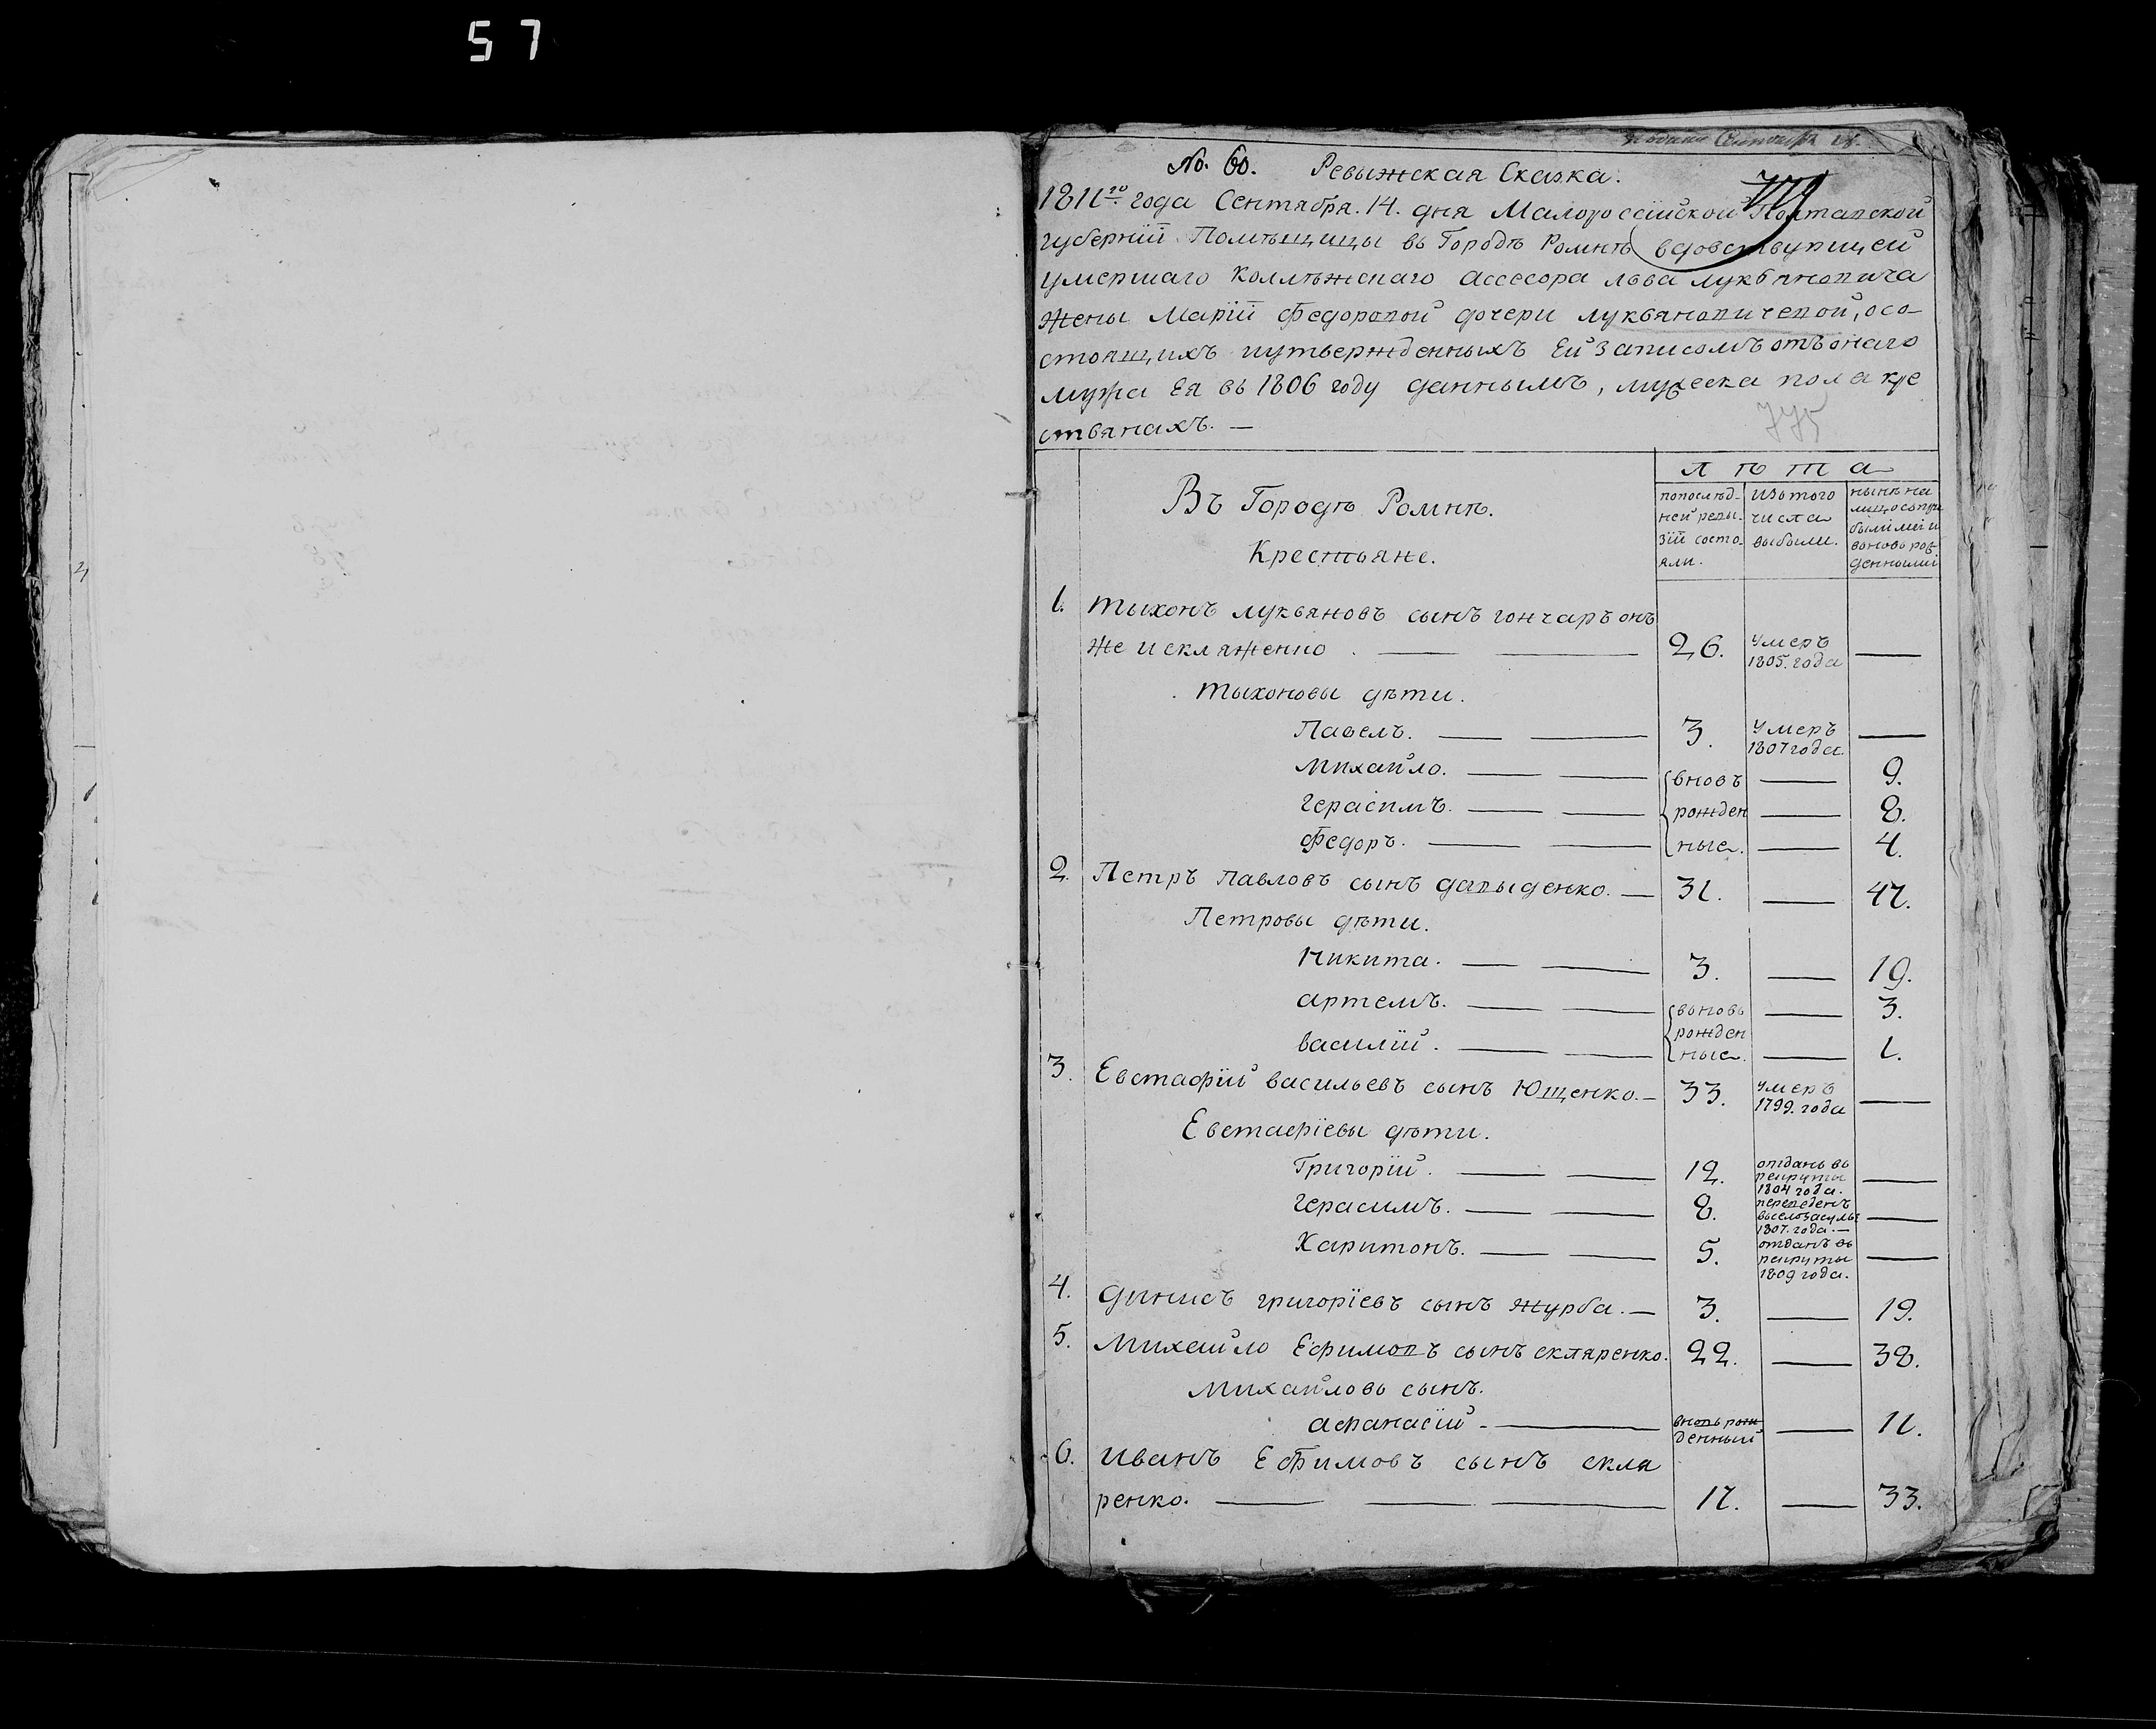 57
подана Сентября 14.
No. 60. Ревыжская Сказка.
1811го года Сентября. 14. дня Малороссїйской Полтавской
губернїй Помѣщицы въ Городѣ Ромнѣ вдовствующей
умершаго Коллѣжскаго Ассесора Льва лукьяновича
жены Марїй Федоровой дочери лукьяновичевой, осо-
стоящихъ иутвержденныхъ Ей записомъ отъ онаго
мужа Ея въ 1806 году даннымъ, мужеска пола кре
стьянахъ. —
775
Въ Городѣ Ромнѣ.
Крестьяне.
л ѣ т а
попослѣд-
ней ревы-
зїй состо-
яли.
изътого
числа
выбыли.
нынѣ на
лицо съпри
былїми и
вьновь рож
денными
1. тыхонъ лукьяновъ сынъ гончаръ онъ
же искляженко . — — 26. умеръ 1805. года —
тыхоновы дѣти.
Павелъ. — — 3. умеръ 1807 года. —
михайло. — — вновъ — 9.
герасїмъ. — — рожден — 8.
Федоръ. — — ные. — 4.
2. Петръ павловъ сынъ давыденко. — 31. — 47.
Петровы дѣти.
Никита. — — 3. — 19.
артемъ. — — вьновь — 3.
рожден
василїй. — — ные. — 1.
3. Евстафїй васильевъ сынъ Ющенко. — 33. умеръ 1799. года —
Евстафїевы дѣти.
Григорїй. — — 12. отданъ въ рекруты 1804 года. —
герасимъ. — — 8. переведенъ въсело засулье 1807. года. — —
Харитонъ. — — 5. отданъ въ рекруты 1809 года. —
4. динисъ григорїевъ сынъ журба. — 3. — 19.
5. Михайло Ефимовъ сынъ скляренко. 22. — 38.
михайловъ сынъ.
афанасїй - — вновь рож денный — 11.
6. иванъ Ефимовъ сынъ скля
ренко. — — — 17. — 33.